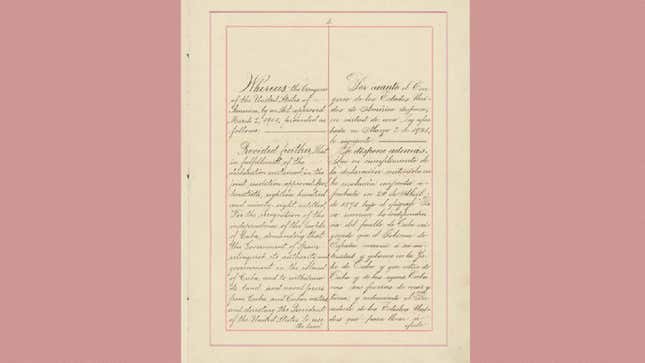 Whereas the Congress
of the United States of
America, by an Act approved
March 2, 1901, provided as
follows:
Provided further, That
in fulfillment of the
declaration contained in the
joint resolution approved
twentieth, eighteen hundred
and ninety-eight, entitled,
"For the recognition of the
independence of the people
of Cuba, demanding that
the Government of Spain
relinquish its authority and
government in the island
of Cuba, and to withdraw
its land and naval forces
from Cuba and Cuban waters,
and directing the President
of the United States to use
the land
Por cuanto el Con-
greso de los Estados Uni-
dos de América dispuso,
en virtud de una Ley apro-
bada en Marzo 2 de 1901,
lo siguiente:
Se dispone además,
Que en cumplimiento de
la declaración contenida en
la resolución conjunta a-
probada en 20 de Abril
de 1898
el reconocer la independen-
cia del pueblo de Cuba exi-
giendo que el Gobierno de
España renuncie á su au-
toridad y gobierno en la Is-
la de Cuba y que retire de
Cuba y de las aguas Cuba-
nas sus fuerzas de mar y
tierra, y ordenando al Pre-
sidente de los Estados Uni-
dos que para llevar á
efecto